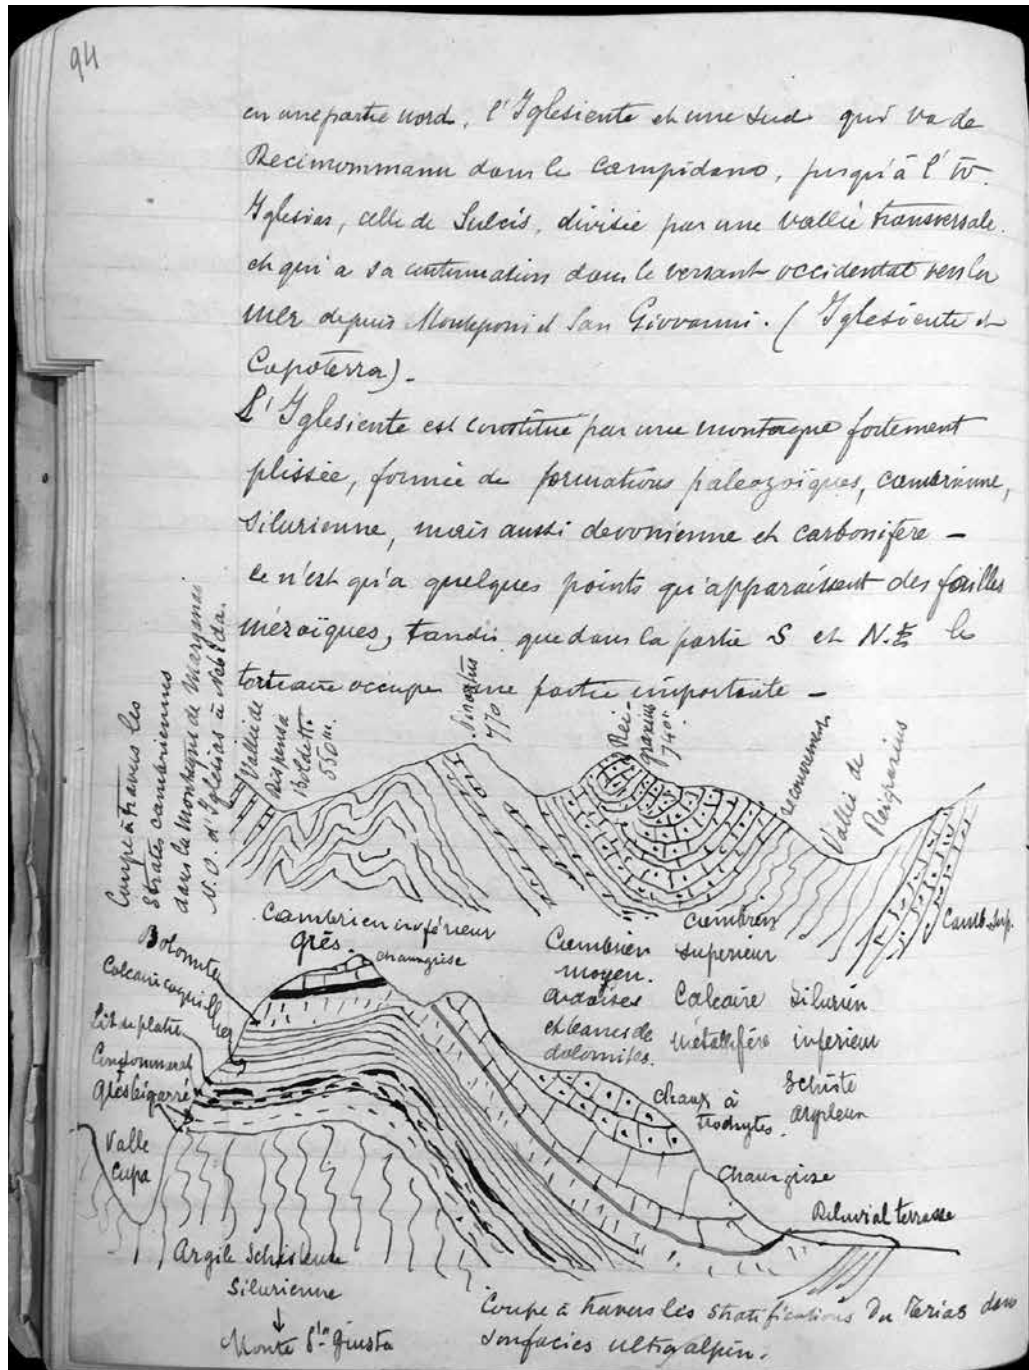 94
en une partie nord, l'Iglesiente et une sud qui va de
Decimommanu dans le Campidano, jusqu'à l'W.
Iglesias, celle de Sulcis, divisée par une vallée transversale.
et qui a sa continuation dans le versant occidental vers la
mer depuis Monteponi et San Giovanni. (Iglesiente et
Capoterra).
L'Iglesiente est constitué par une montagne fortement
plissée, formée de formations paleozoïques, cambrienne,
Silurienne, mais aussi devonienne et carbonifère –
ce n'est qu'a quelques points qu'apparaissent des
mézoïques, tandis que dans la partie S et N.E le
tertiaire occupe une partie importante –
Coupe à travers les
Strates cambriennes
dans la Montagne de Marganai
N.O. d'Iglesias à Nebida.
Vallée de
Dispensa
Boldetti
550 m.
770
Rei-
graxius
740
recouvrement
Vallée de
Reigraxius
Cambrien inférieur
Grés.
Cambrien
moyen.
ardoises
et bancs de
dolomites.
Cambrien
superieur
Calcaire
métallifère
Silurien
inferieur
Schiste
argileux
Camb. sup.
Dolomites
Calcaire coquillier
Lit de platre
Conglommerat
Grès bigarré
chaux grise
Valle
Cupa
chaux à
trochytes.
Chaux grise
Diluvial terrasse
Argile Schisteuse
Silurienne
↓
Monte Sta Giusta
Coupe à travers les stratifications Du Trias dans
son facies ultralpin.